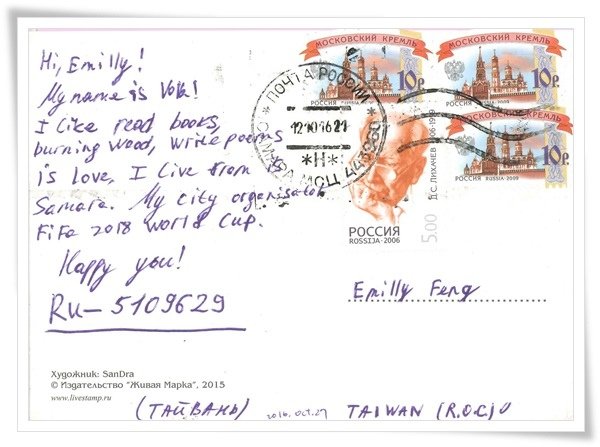 Hi, Emilly!
My name is Vova!
I like read books,
burning wood, write poems
is love, I live from
Samara. My city organisator
FiFa 2018 World Cup.
Happy you!
RU-5109629
Художник: SanDra
© Издательство "Живая Марка", 2015
www.livestamp.ru
МОСКОВСКИЙ КРЕМЛЬ
10р.
РОССИЯ RUSSIA-2009
МОСКОВСКИЙ КРЕМЛЬ
10р.
РОССИЯ RUSSIA-2009
10р.
РОССИЯ RUSSIA-2009
ПОЧТА РОССИИ
САМАРА МСЦ
12101621
*Н*
Д.С.ЛИХАЧЕВ 1906-1999
5.00
РОССИЯ
ROSSIJA-2006
Emilly Feng
(ТАЙВАНЬ)
2016. Oct. 27
TAIWAN (R.O.C)